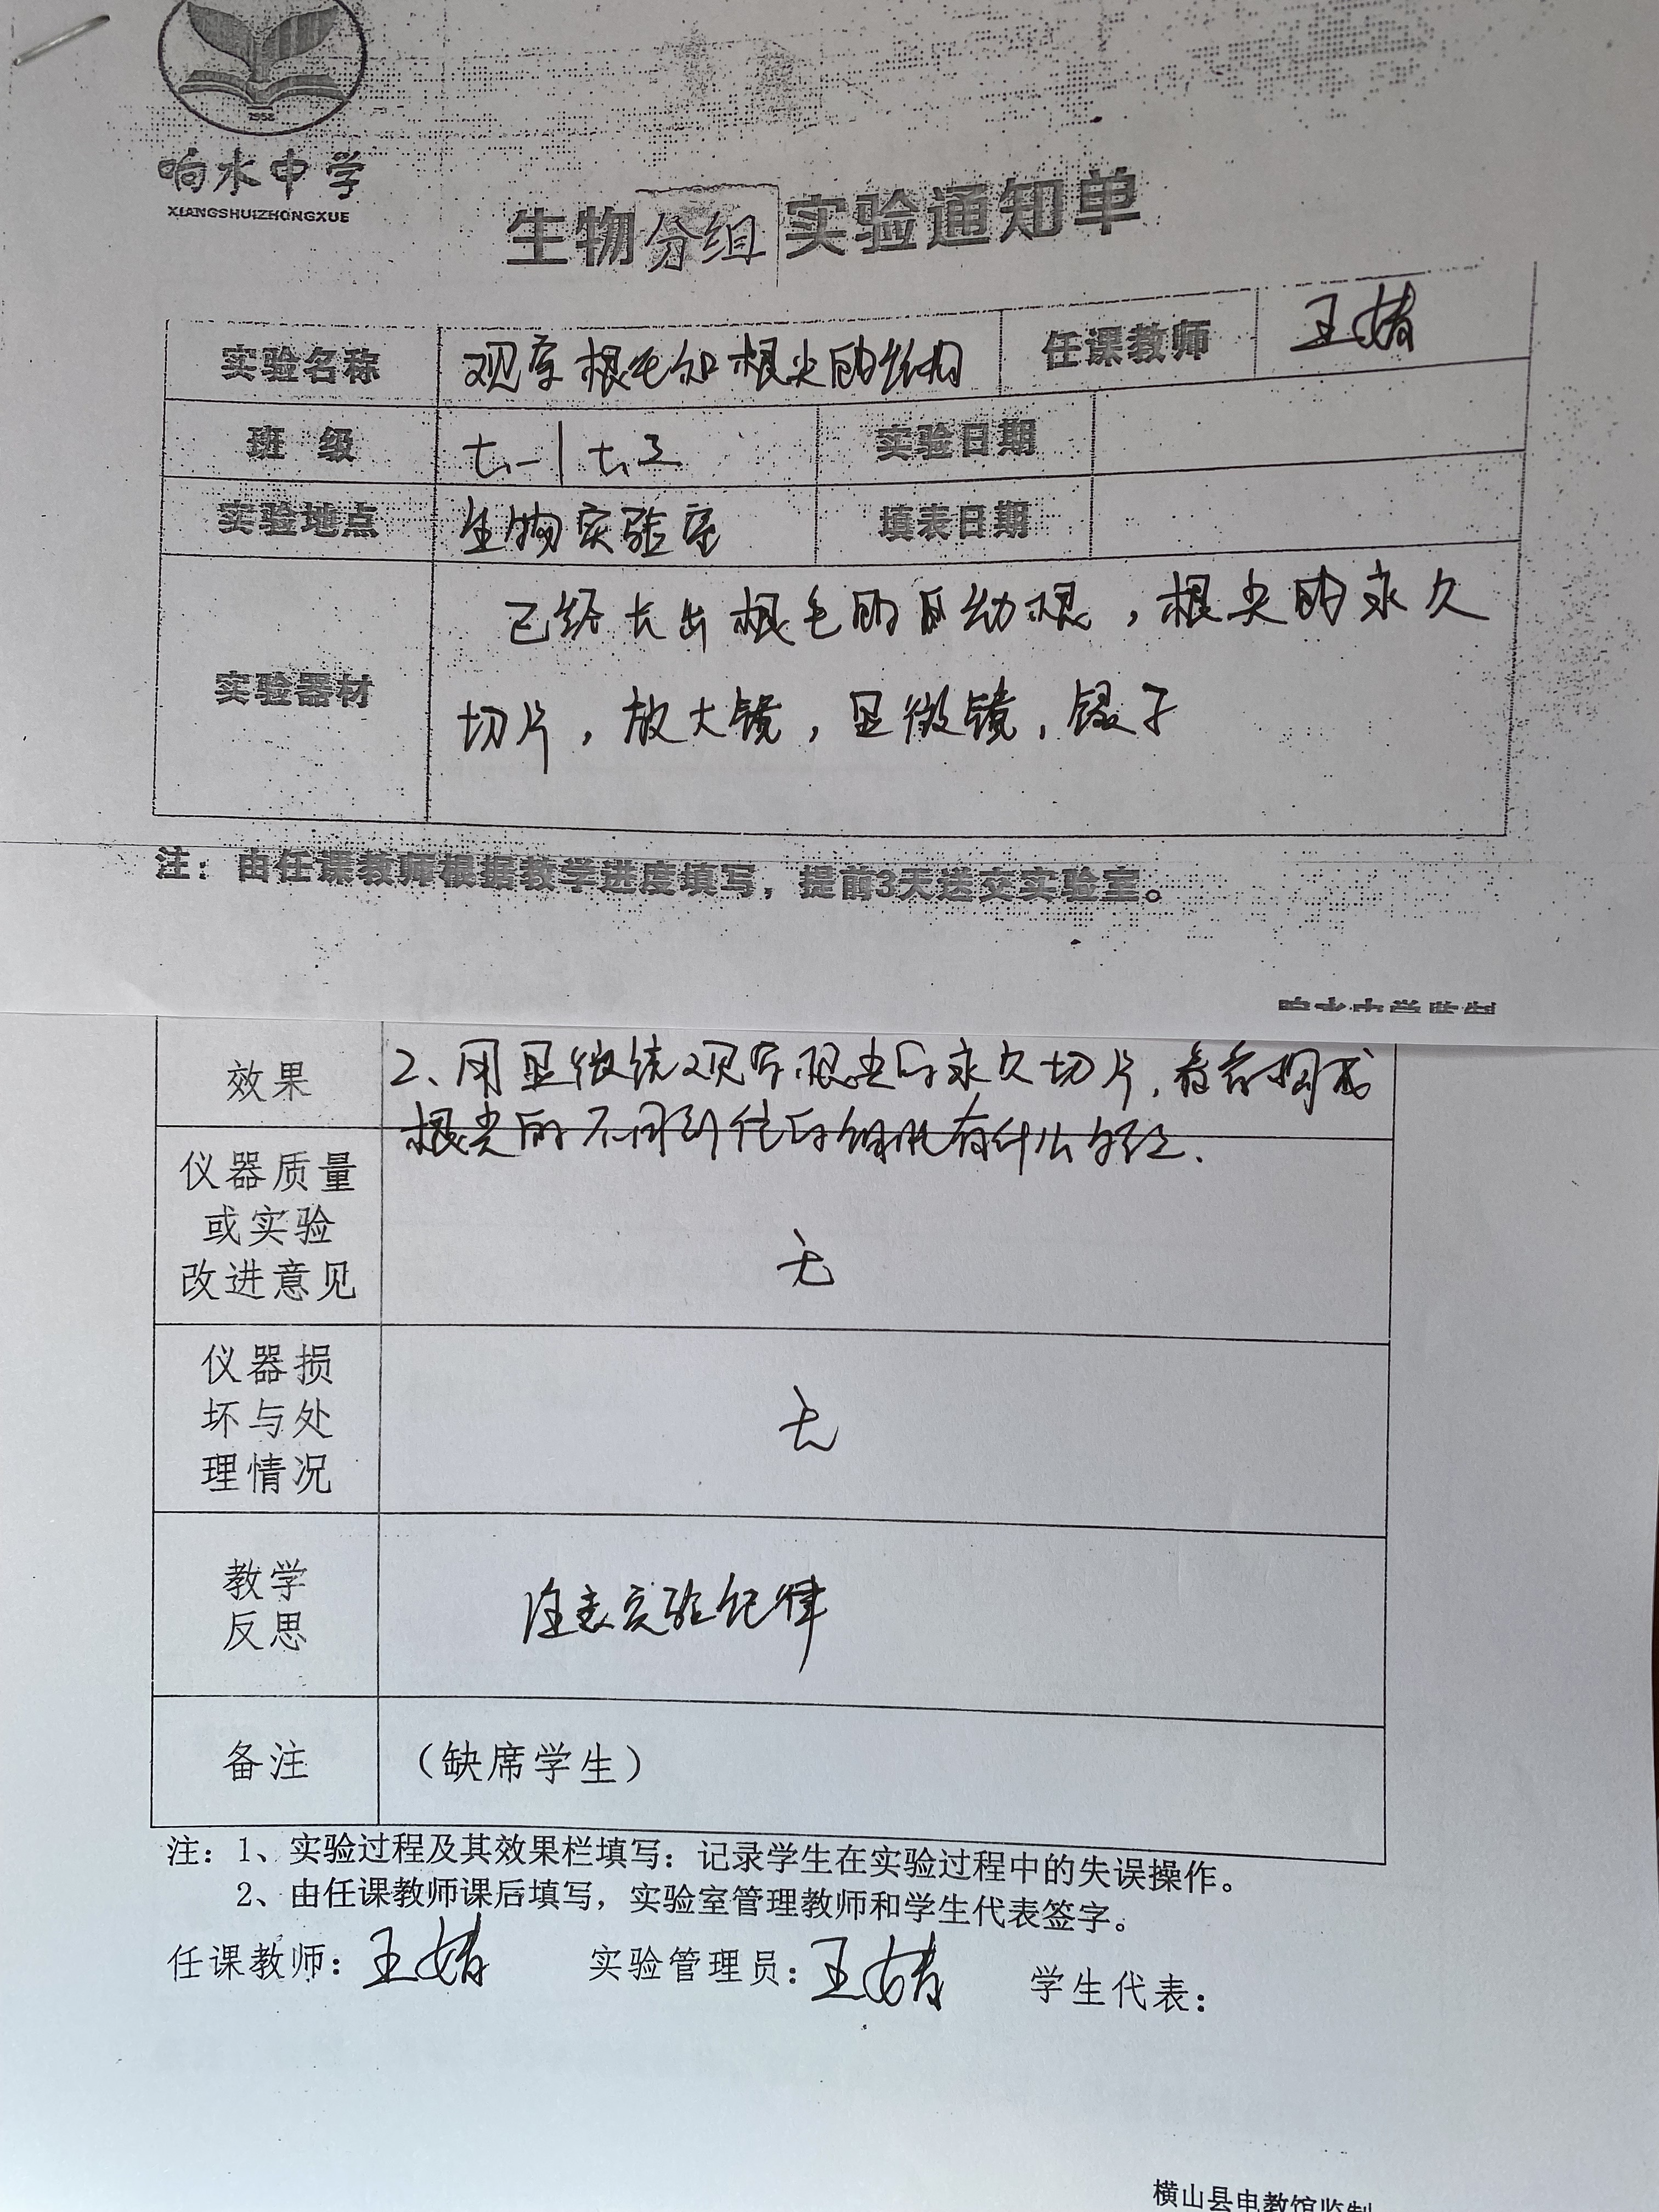 1958
响水中学
XIANGSHUIZHONGXUE
生物分组实验通知单
实验名称 观察根毛和根尖的结构 任课教师 王婧
班 级 七.一 七.三 实验日期
实验地点 生物实验室 填表日期
实验器材
已经长出根毛的 幼根，根尖的永久
切片，放大镜，显微镜，镊子
注：由任课教师根据教学进度填写，提前3天送交实验室。
响水中学监制
效果
2、用显微镜观察根尖的永久切片，看看构成
根尖的不同部位的细胞有什么
仪器质量
或实验
改进意见
无
仪器损
坏与处
理情况
无
教学
反思
注意实验纪律
备注 （缺席学生）
注：1、实验过程及其效果栏填写：记录学生在实验过程中的失误操作。
2、由任课教师课后填写，实验室管理教师和学生代表签字。
任课教师：王婧 实验管理员：王婧 学生代表：
横山县电教馆监制